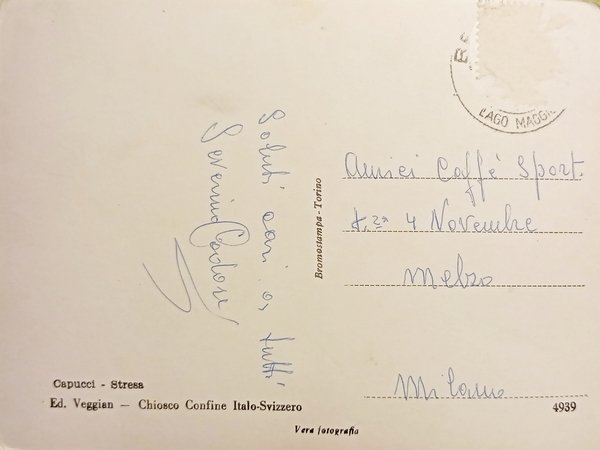 Saluti cari a tutti
Severino
LAGO MAGGIO
Amici Caffè Sport.
4 Novembre
Melzo
Milano
Bromostampa - Torino
Capucci - Stresa
Ed. Veggian — Chiosco Confine Italo-Svizzero
4939
Vera fotografia